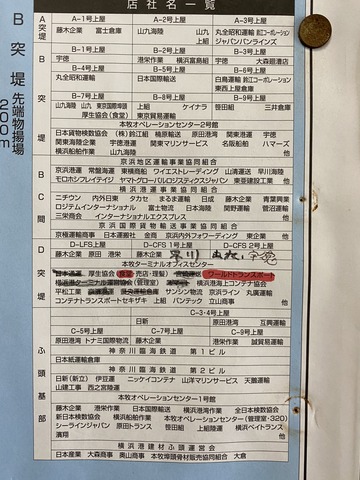 店社名一覧
B突堤 先端物揚場 200m
A突堤
A-1号上屋 A-2号上屋 A-3号上屋
藤木企業 富士倉庫 山九海陸 丸全昭和運輸 鈴江コーポレーション
上組 ジャパンバンラインズ
B突堤
B-1号上屋 B-2号上屋 B-3号上屋
宇徳 港栄作業 横浜富島組 宇徳 大森廻漕店
B-4号上屋 B-5号上屋 B-6号上屋
丸全昭和運輸 日本国際輸送 白山運輸 鈴江コーポレーション
東西上屋倉庫
B-7号上屋 B-8号上屋 B-9号上屋
山九海陸 山九 東京国際埠頭 上組 ケイナラ 笹田組 三井倉庫
厚生協会(食堂) 東京貿易運輸
本牧オペレーションセンター2号館
日本貨物検数協会 (株)鈴江組 楠原輸送 原田港湾 関東港運 宇徳
関東海陸企業 宇徳港運 関東マリンサービス 名阪船舶 ハマーズ
横浜船舶作業 山九海陸 他
京浜地区運輸事業協同組合
BC間
京浜港運 常盤海運 東横商船 ワイエストレーディング 山清運送 早川海陸
モロホシフレイテイジ ヤマトグローバルロジスティクスジャパン 東亜建設工業 他
横浜港運事業協同組合
ニチウン 内外日東 タカセ まるふる運送 日成 藤木企業 青葉興業
ロジスティムオペレーション 富士物流 日本海隆 関野運輸 菅沼運輸
三栄商会 インターナショナルエクスプレス 他
京浜国際貨物輸送事業協同組合
京極運輸商事 日本運搬社 会商 京浜内外フォワーディング 東企業 他
D突堤
D-LFS上屋 D-CFS 1号上屋 D-CFS 2号上屋
藤木企業
本牧ターミナルオフィスセンター
日本通運 厚生協会(食堂・売店・理髪) ワールドトランスポート
横浜港ターミナル運営協会(管理室) 横浜港海上コンテナ協会
平松工業 サンシン物流 京浜ライン 丸廣運輸
コンテナトランスポートセキザキ 上組 バンテック 立山商事 他
ふ頭基部
C-3・4号上屋
日新 原田港湾 互興運輸 他
C-5号上屋 C-7号上屋 C-9号上屋
原田港湾 トナミ国際物流 藤木企業 港栄作業 誠貿易運輸
神奈川臨海鉄道 第1ビル
日本紙運輸倉庫
神奈川臨海鉄道 第2ビル
日新(新立) 伊豆運 ニッケイコンテナ 山洋マリンサービス 天鵬運輸
山建工業 西之宮陸運
本牧オペレーションセンター1号館
藤木企業 港栄作業 日本国際輸送 横浜港湾作業 全日本検数協会
新日本検数協会 横浜船舶作業 本牧オペレーションセンター(管理室・320)
シーラインジャパン 原田トランス 笹田組 上組陸運 横浜ベイトランス
濱翔 他
横浜港建材ふ頭運営会
日本産業 大森商事 奥山商事 本牧埠頭骨材販売協同組合 大倉